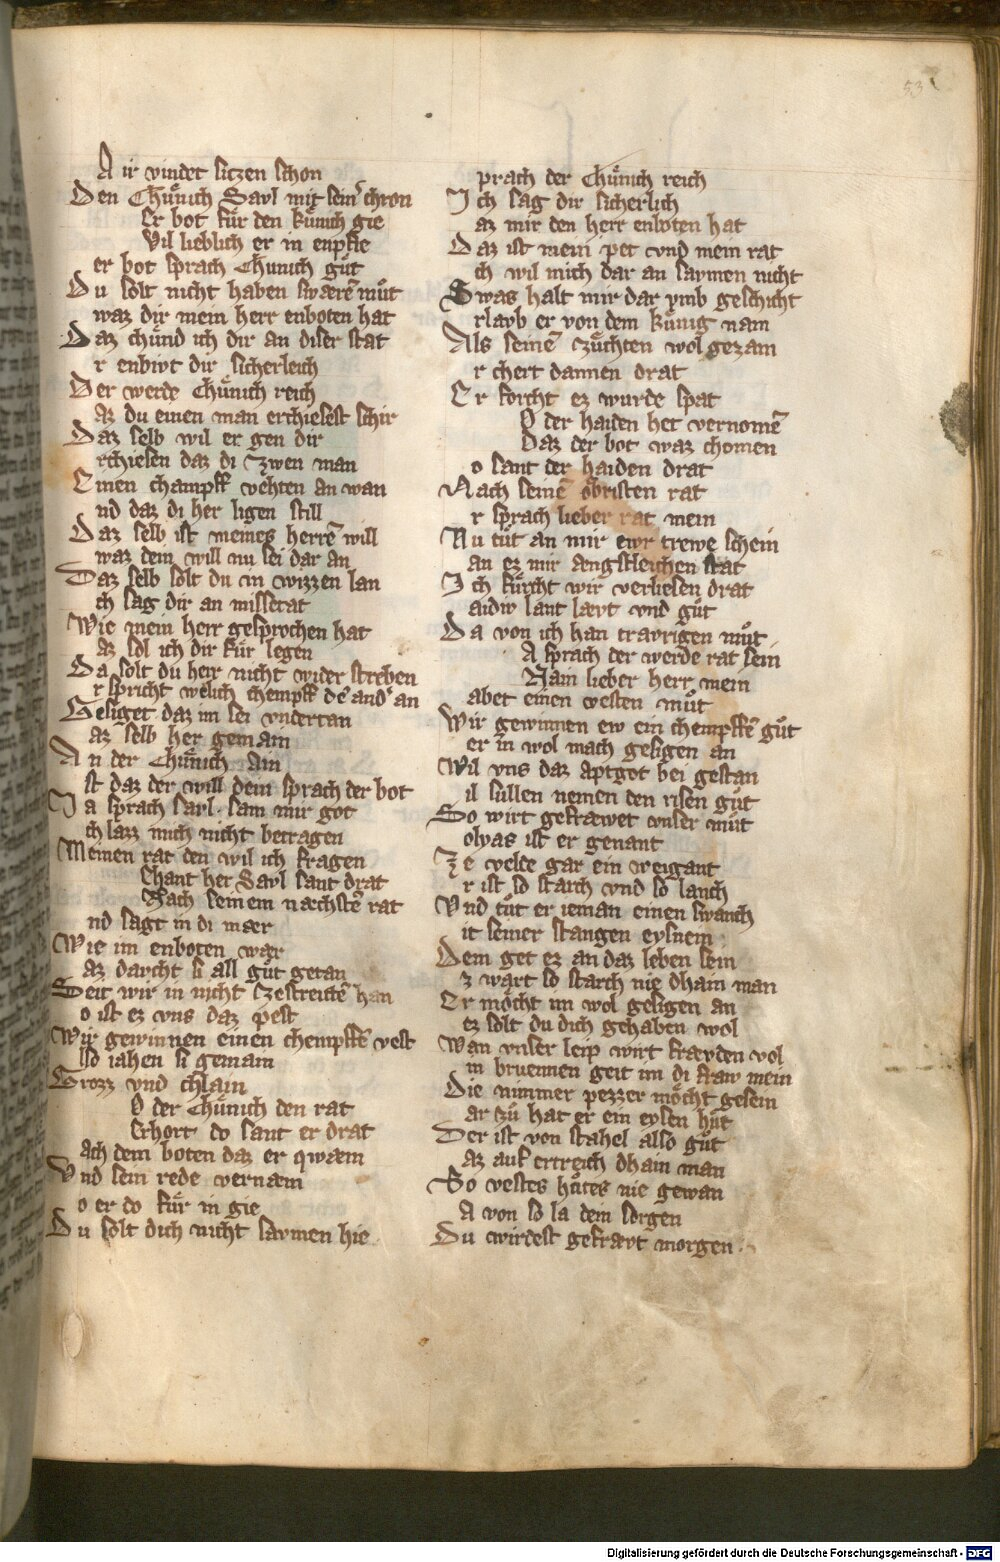 53
A ir vindet sitzen schon
Den Chuͤnich Savl mit sein̄ chron
Er bot fuͤr den kuͤnich gie
Vil lieblich er in enpfie
er bot sprach Chunich guͤt
Du solt nicht haben swærē muͤt
waz dir mein herr enboten hat
Daz chuͤnd ich dir an diser stat
r enbivt dir sicherleich
Der werde Chuͤnich reich
az du einen man erchiesest schir
Daz selb wil er gen dir
rchiesen daz di zwen man
Einen champff vehten an wan
nd daz di her ligen still
Daz selb ist meines herrē will
waz dein will nu sei dar an
Daz selb solt du in wizzen lan
ch sag dir an missetat
Wie mein herr gesprochen hat
az sol ich dir fuͤr legen
Da solt du herr nicht wider streben
r spricht welich chempff dē and' an
Gesiget daz im sei vndertan
az selb her gemain
An der Chuͤnich ain
st daz der will dein sprach der bot
Ja sprach sarl sam mir got
ch lazz mich nicht betragen
Meinen rat den wil ich fragen
Chant her Savl sant drat
Nach seinem næchstē rat
nd sagt in di mær
Wie im enboten wær
az davcht si all guͤt getan
Seit wir in nicht zestreitē han
o ist ez vns daz pest
Wir gewinnen einen chempffē vest
lso iahen si gemain
Grozz vnd chlain
O der Chuͤnich den rat
Erhort do sant er drat
ach dem boten daz er qwæm
Vnd sein rede vernæm
o er do fuͤr in gie
Du solt dich nicht savmen hie
prach der Chuͤnich reich
Ich sag dir sicherlich
az mir den herr enboten hat
Daz ist mein pet vnd mein rat
ch wil mich dar an savmen nicht
Swas halt mir dar vmb geschicht
rlavb er von dem kuͤnig nam
Als seinē zuͤchten wol gezam
r chert dannen drat
Er forcht ez wurde spat
O der haiden het vernomē
Daz der bot waz chomen
o sant der haiden drat
Nach seinē obristen rat
r sprach lieber rat mein
Nu tuͤt an mir ewr trewe schein
an ez mir ængstleichen stat
Ich fuͤrcht wir verliesen drat
aidiv lant lævt vnd guͤt
Da von ich han travrigen muͤt
A sprach der werde rat sein
Nain lieber herr mein
abet einen vesten muͤt
Wir gewinnen ew ein chempffē guͤt
er in wol mach gesigen an
Wil vns daz aptgot bei gestan
il sullen nemen den risen guͤt
So wirt gefræwet vnser muͤt
olyas ist er genant
Ze velde gar ein weigant
r ist so starch vnd so lanch
Vnd tuͤt er ieman einen swanch
it seiner stangen eysnein
Dem get ez an daz leben sein
z wart so starch nie dhain man
Er moͤcht im wol gesigen an
ez solt du dich gehaben wol
Wan vnser leip wirt frævden vol
in bruennen geit im di ffaw mein
Die nimmer pezzer moͤcht gesein
ar zuͤ hat er ein eysen huͤt
Der ist von stahel also guͤt
az auf ertreich dhain man
So vestes huͤtes nie gewan
A von so la dem sorgen
Du wirdest gefrævt morgen
Digitalisierung gefördert durch die Deutsche Forschungsgemeinschaft - DFG